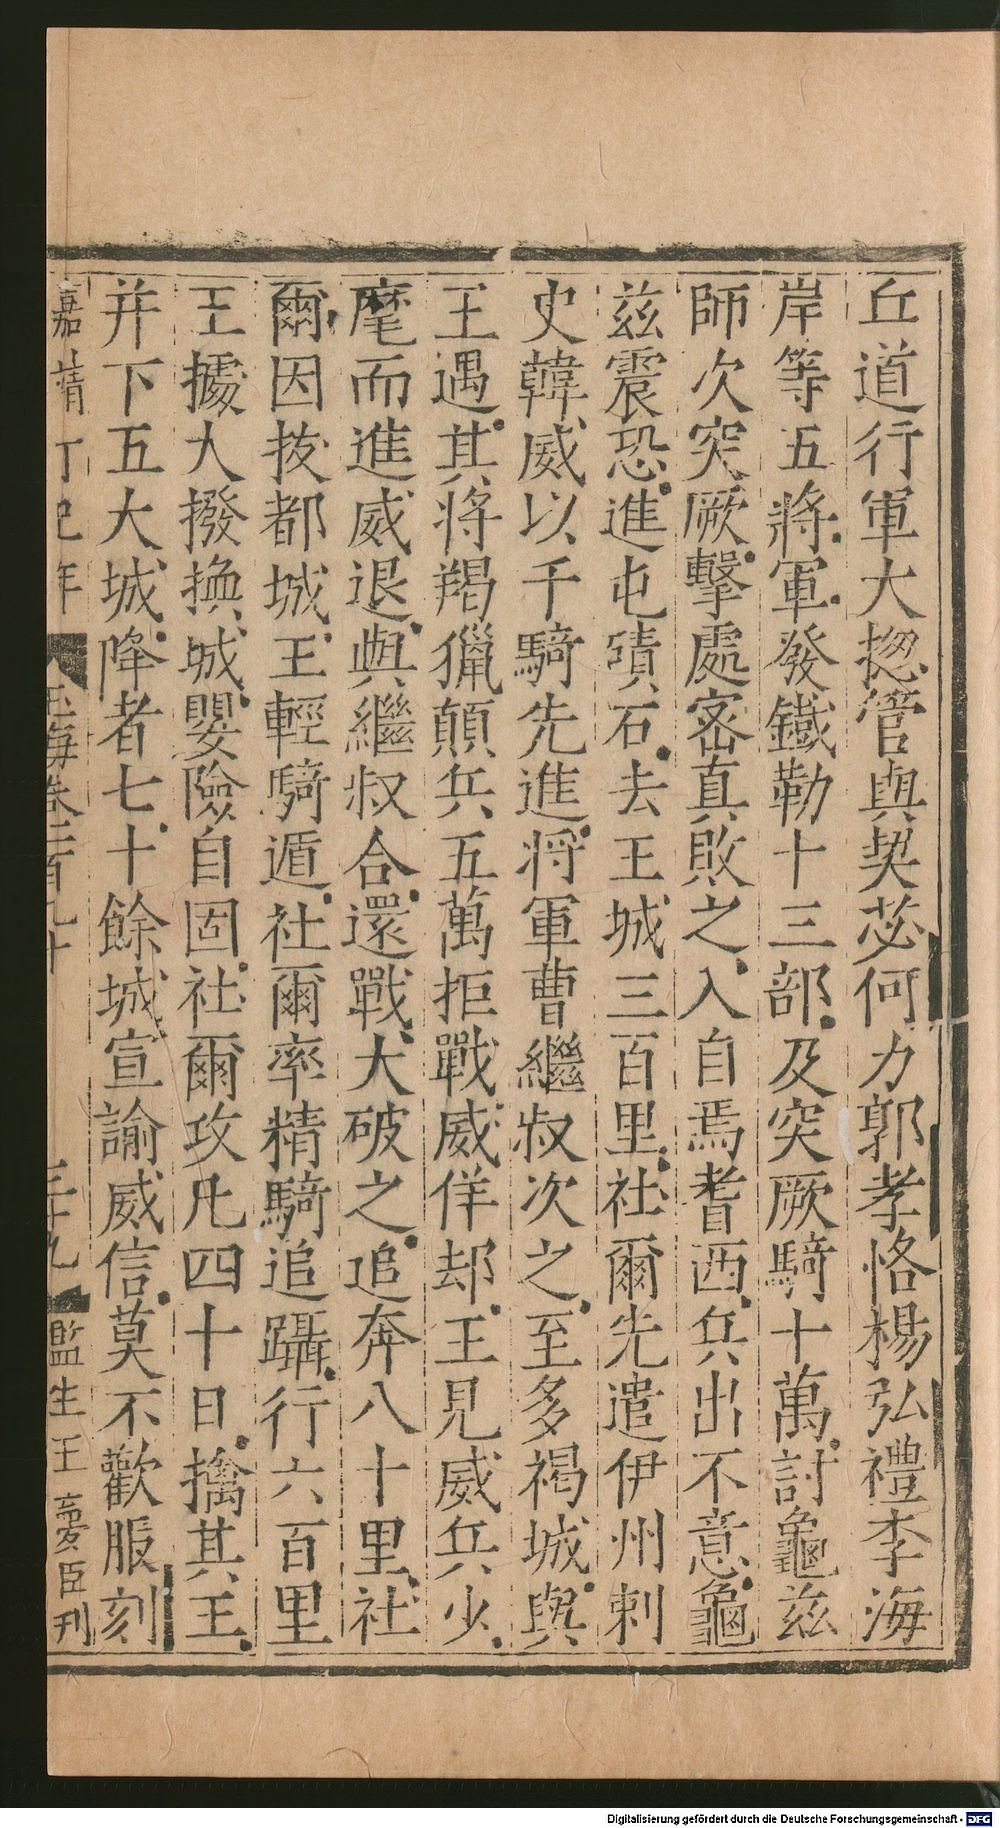 丘道行軍大揔管與契苾何力郭孝恪楊弘禮李海
岸等五將軍發鐵勒十三部及突厥騎十萬討龜兹
師次突厥擊處密真敗之入自焉耆西兵出不意龜
兹震恐進屯磧石去王城三百里社爾先遣伊州刺
史韓威以千騎先進將軍曹繼叔次之至多褐城與
王遇其將羯獵顛兵五萬拒戰威佯却王見威兵少
麾而進威退與繼叔合還戰大破之追奔八十里社
爾因拔都城王輕騎遁社爾率精騎追躡行六百里
王據大撥換城嬰險自固社爾攻凡四十日擒其王
并下五大城降者七十餘城宣諭威信莫不歡服刻
嘉靖丁巳年
玉海卷一百九十
三十九
監生王䕫臣刊
Digitalisierung gefördert durch die Deutsche Forschungsgemeinschaft - DFG